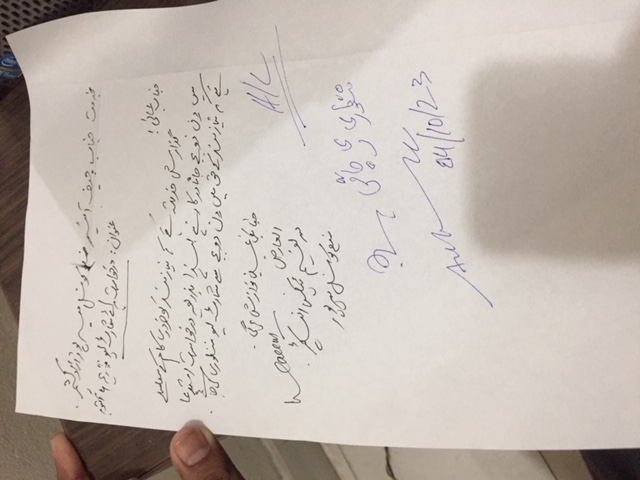 بخدمت جناب چیف آفیسر ضلع کونسل میرپور آزاد کشمیر۔
عنوان: درخواست برائے شارٹ لیو مورخہ 4 اکتوبر
جناب عالی!
گذارش خدمت ہے کہ نیازمند کو ضروری کام کے سلسلے
میں دن دو بجے جانا درکار ہے لہذا بذریعہ درخواست استدعا
ہے کہ نیازمند کے حق میں دن دو بجے سے شارٹ لیو منظوری کی جائے
جناب کی عین نوازش ہوگی۔
العارض
ٹیکس انسپکٹر
ضلع کونسل میرپور
منظوری دی جاتی ہے
04/10/23